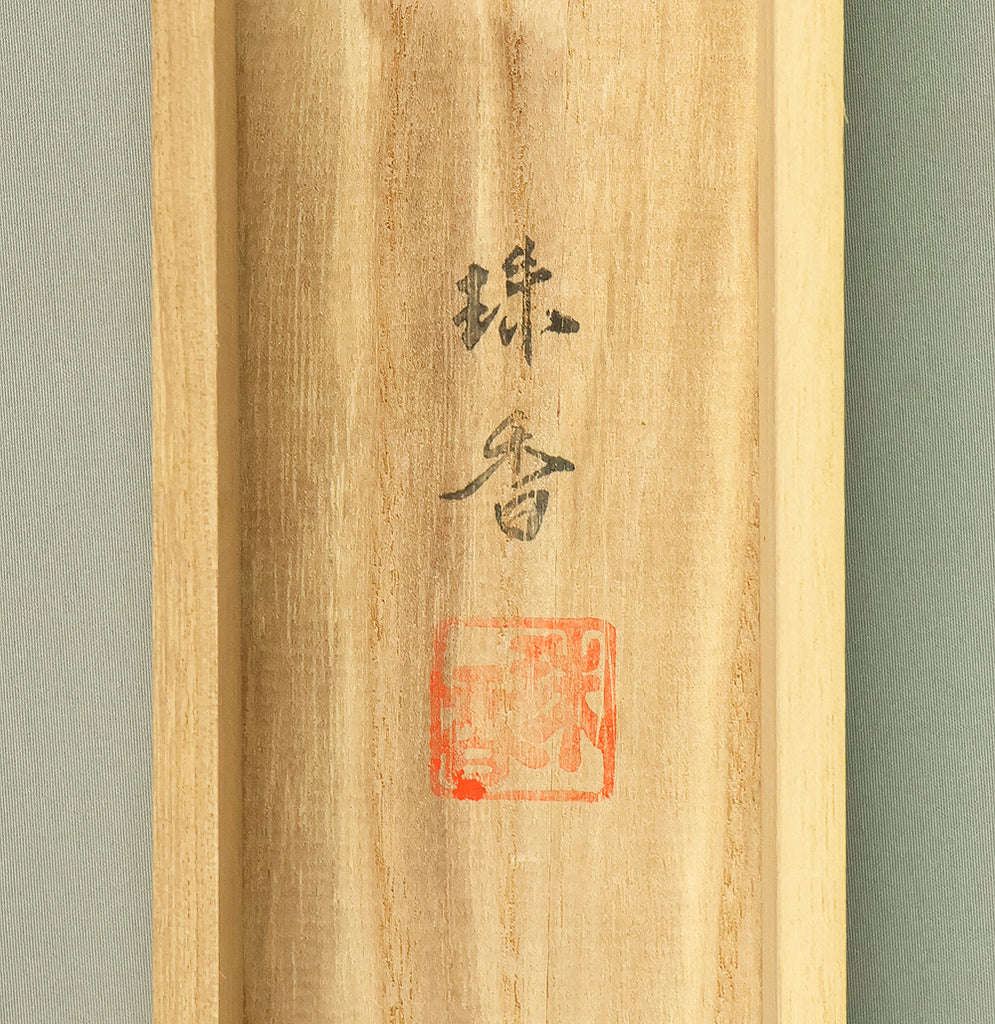 珠
香
珠香